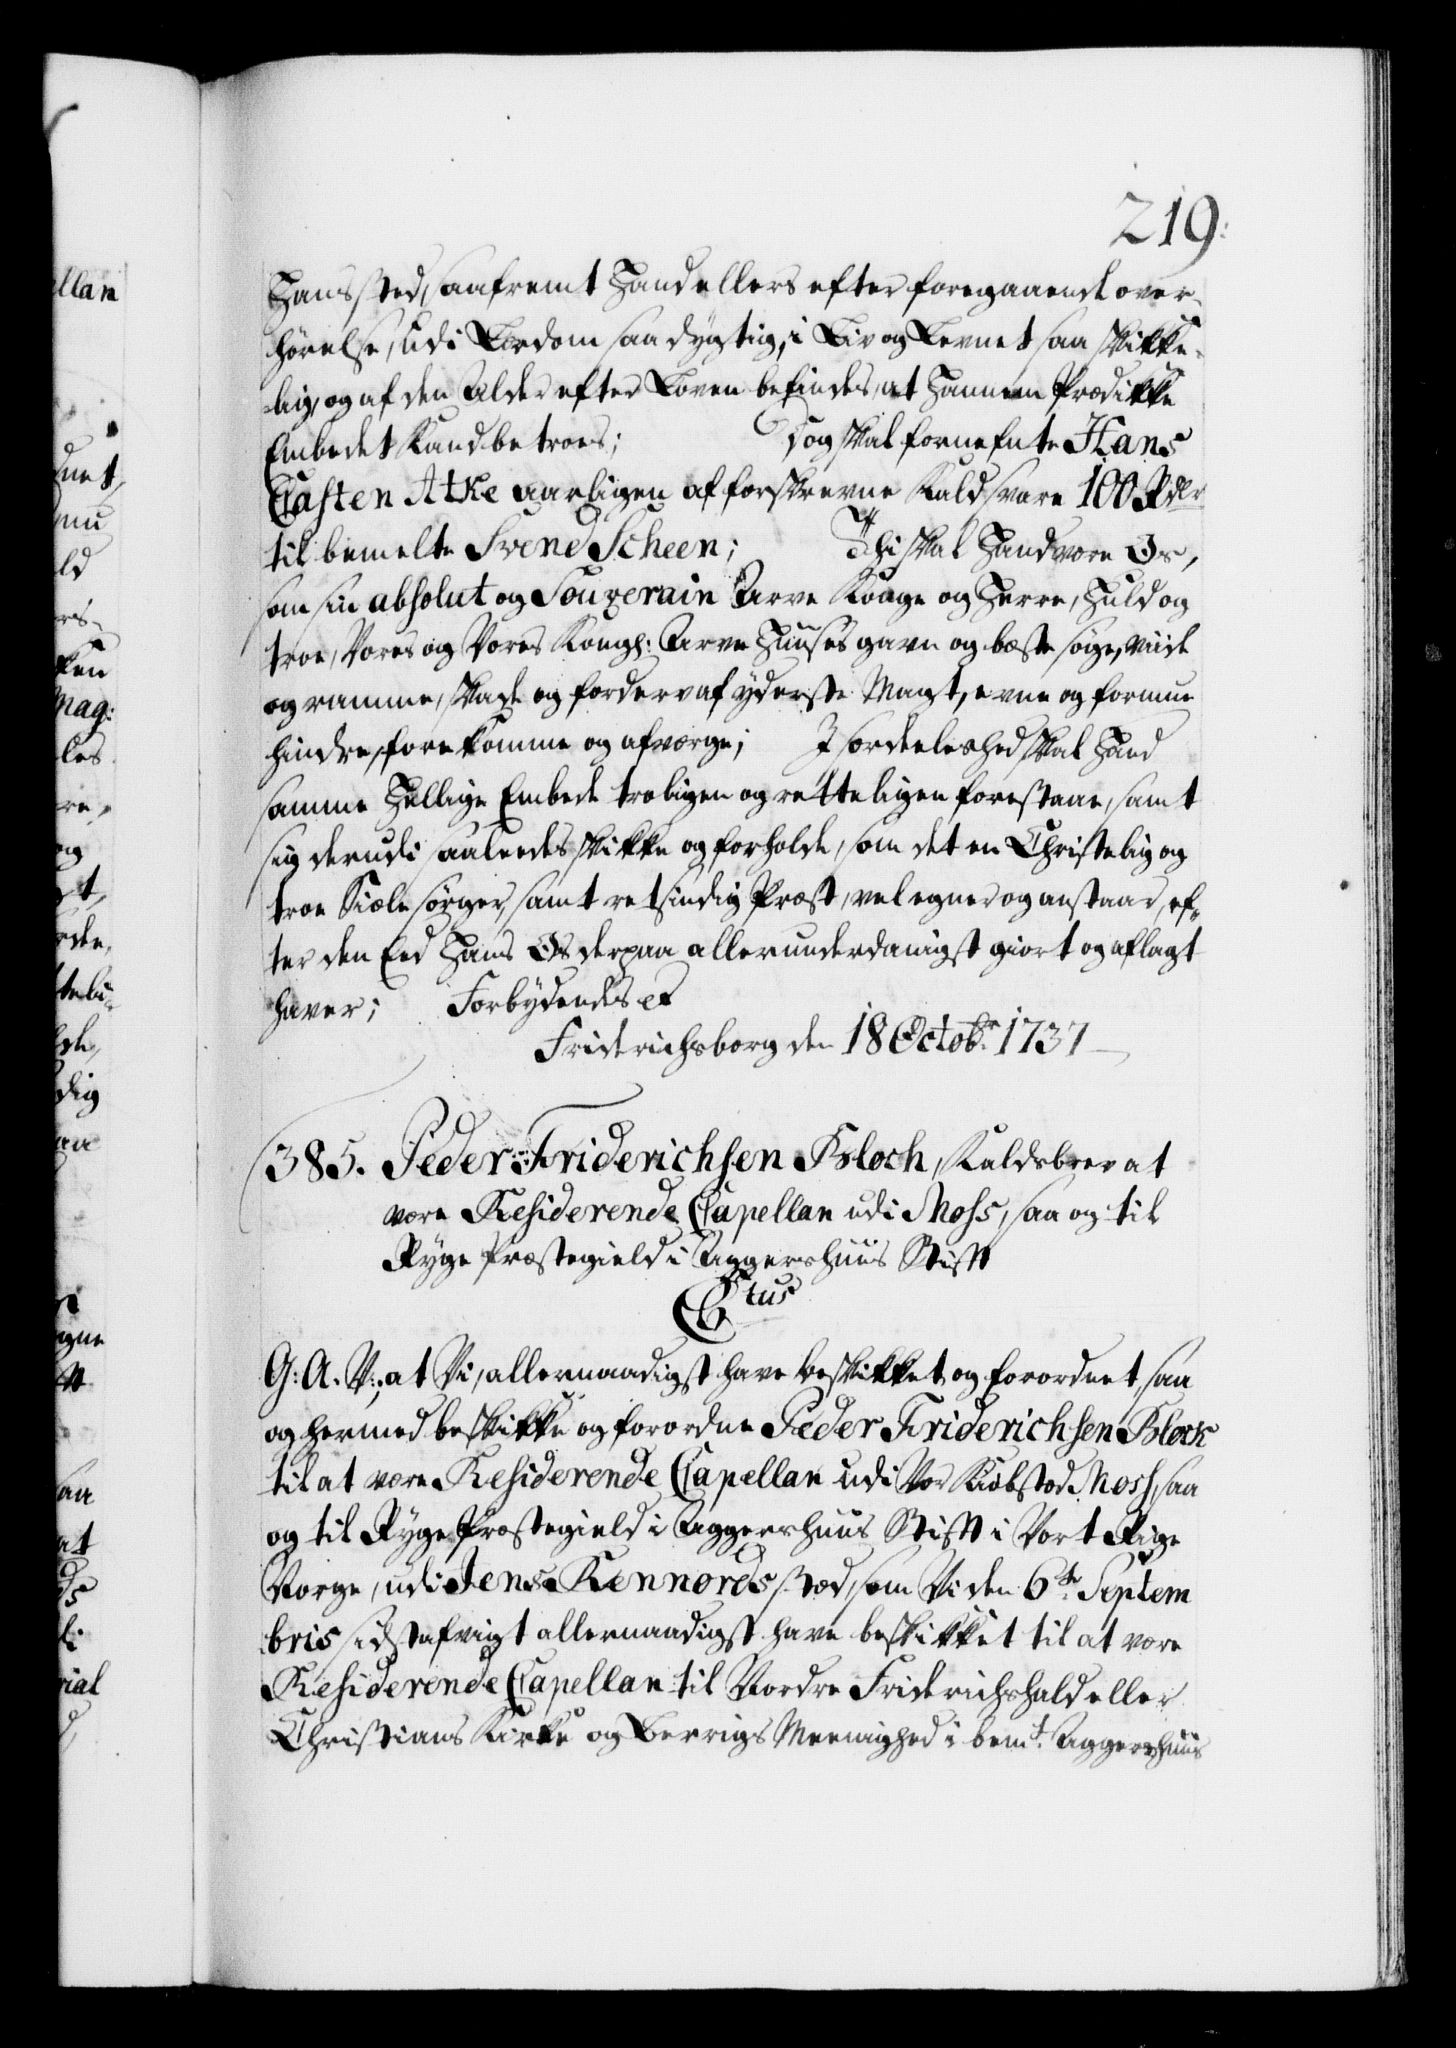 219.
Hans sted, saafremt Hand ellers efter foregaaende over-
hørelse, udi Lærdom saa dygtig, i Liv og Levnet saa skikke-
lig, og af den Alder efter Loven befindes, at Hannem Prædikke
Embedet Kand betroes; Dog skal fornefnte Hans
Casten Atke aarligen af forskrevne Kald svare 100 Rdlr
til bemelte Svend Scheen; Thi skal Hand være Os,
som sin absolut og Souverain Arve Konge og Herre, Huld og
troe, Vores og Vores Kongl: Arve Huuses gavn og beste søge, viide
og ramme, skade og forderv af yderste Magt, evne og formue
hindre, forekomme og afværge; I særdeleshed skal Hand
samme Hellige Embede troligen og retteligen forestaae, samt
sig derudi saaledes skikke og forholde, som det en Christelig og
troe Siæle sørger, samt retsindig Præst, vel egner og anstaar, ef-
ter den Eed Hans Os derpaa allerunderdanigst giort og aflagt
haver; Forbydendes etc
Friderichsborg den 18 Octobr 1737
385. Peder Friderichsen Bloch, Kaldsbrev at
være Residerende Capellan udi Moss, saa og til
Ryge Præstegield i Aggershuus Stift
Ctus
G: A. V:, at Vi, allernaadigst have beskikket og forordnet, saa
og hermed beskikke og forordne Peder Friderichsen Block
til at være Residerende Capellan udi Vor Kiøbstæd Moss, saa
og til Ryge Præstegield i Aggershuus Stift i Vort Rige
Norge, udi Jens Kennords stæd, som Vi den 6te Septem
bris sidstafvigt allernaadigst have beskikket til at være
Residerende Capellan til Nordre Friderichshald eller
Christians Kirke og Berrigs Meenighed i bemt. Aggershuus